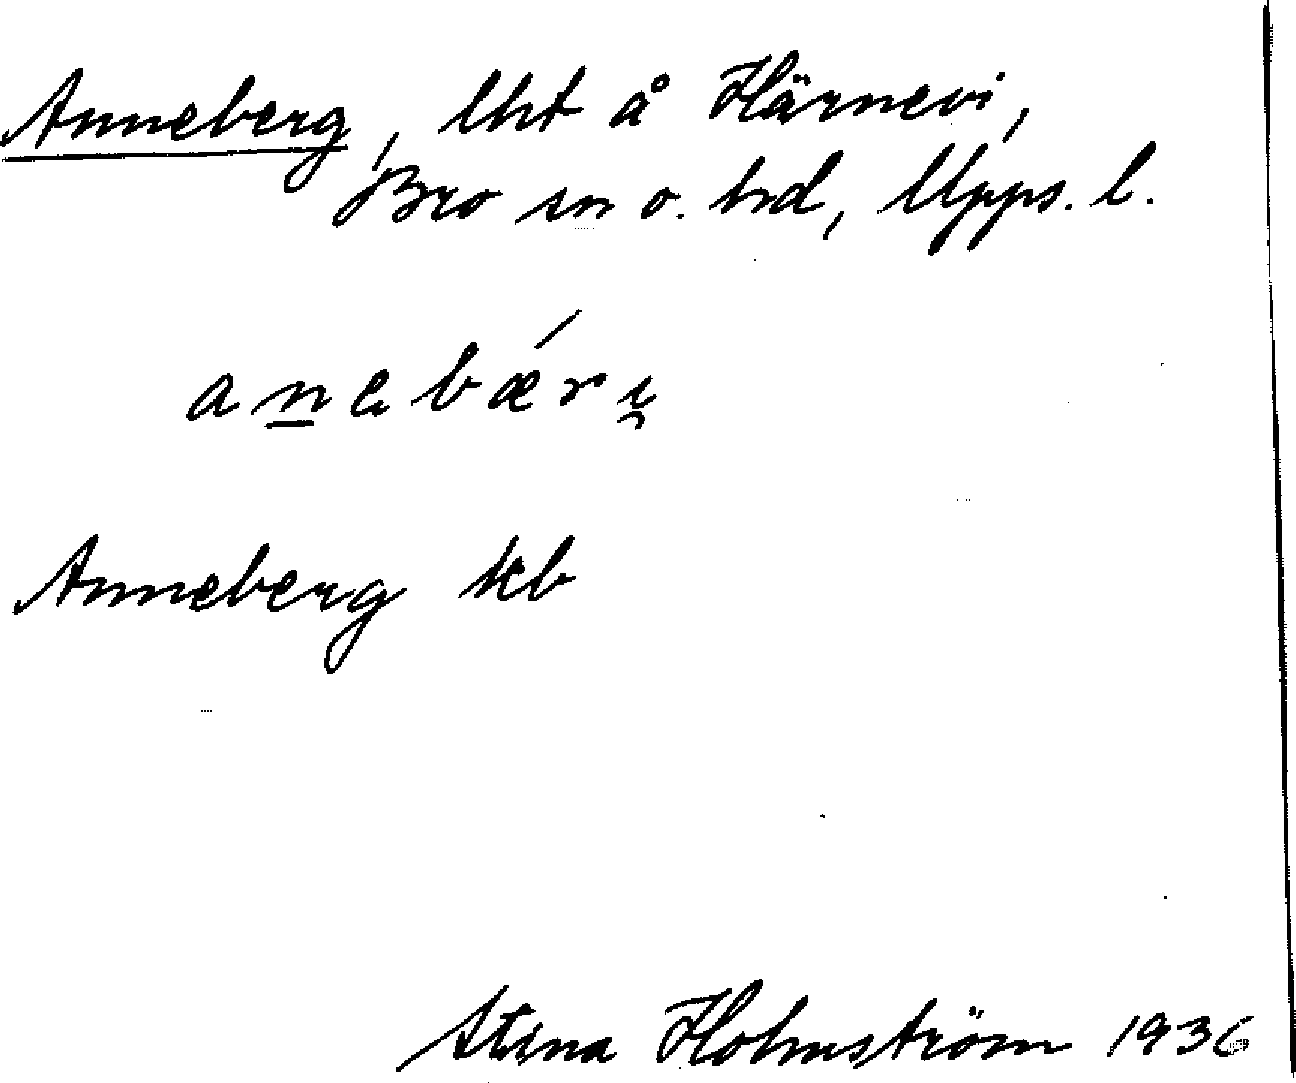 Anneberg, lht å Härnevi,
Bro sn o. hd, Upps. l.
Anneberg kb
Stina Holmström 1936